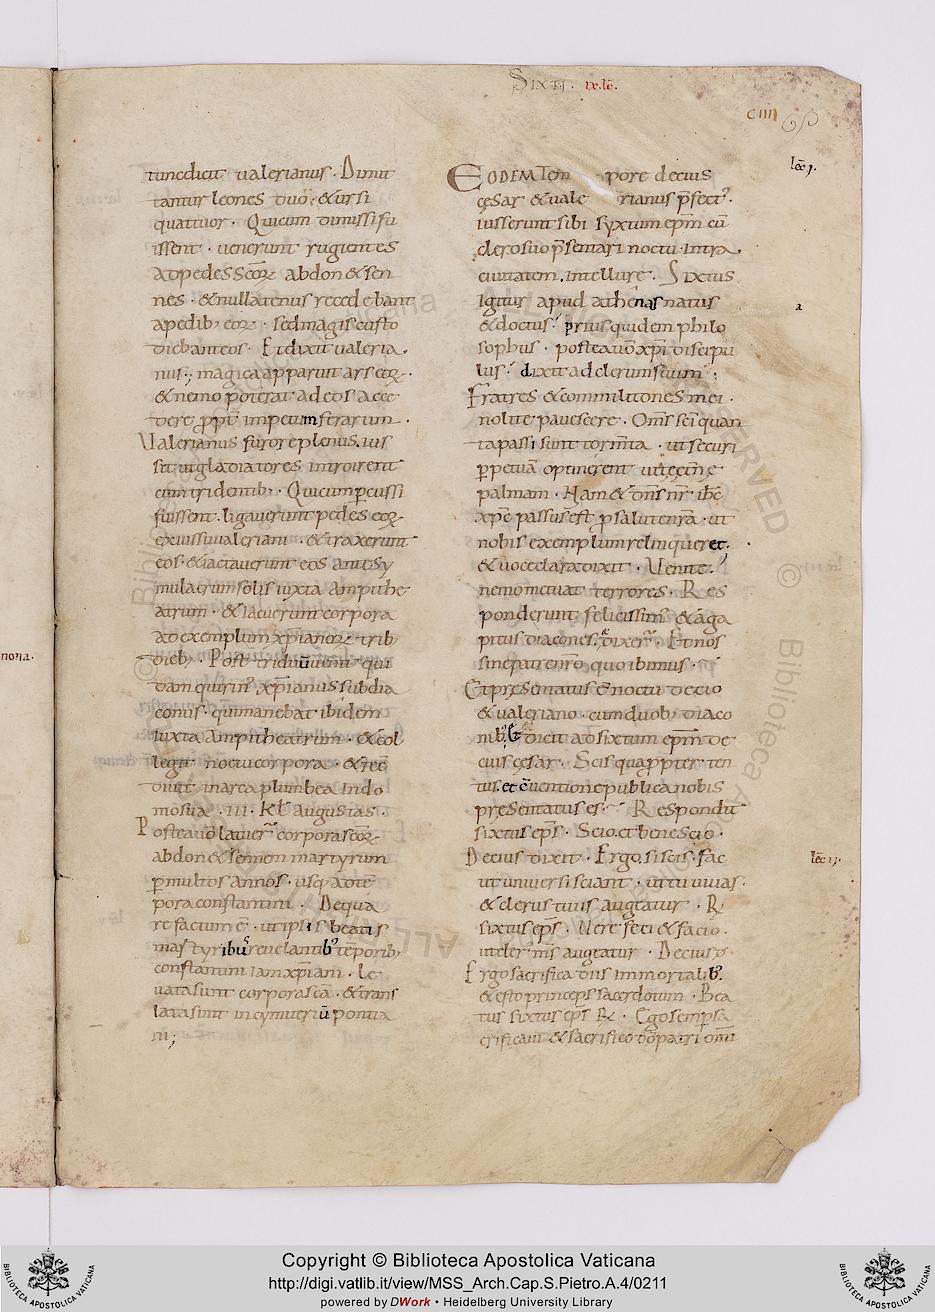 Sixti. ix. lc̄.
ciiii
65
tunc dicit valerianus. Dimit
tantur leones duo. & ursi
quattuor. Qui cum dimissi fu
issent. venerunt rugientes
ad pedes scōꝝ abdon & sen
nes. & nullatenus recedebant
a pedib; eoꝝ. sed magis custo
diebant eos. Et dixit valeria
nus; magica apparuit ars eoꝝ.
& nemo poterat ad eos acce
dere ꝓpt̄ impetum ferarum.
Valerianus furore plenus. ius
sit ut gladiatores introirent
cum tridentib;. Qui cum ꝑcussi
fuissent. ligaverunt pedes eoꝝ
ex iussu valeriani. & traxerunt
eos. & iactaverunt eos ante sy
mulacrum solis iuxta ampithe
atrum. & iacuerunt corpora
ad exemplum xp̄ianoꝝ trib;
dieb;. Post triduū venit qui
dam quirin' xp̄ianus subdia
conus. qui manebat ibidem
iuxta ampitheatrum. & col
legit noctu corpora. & rec̄
didit in arca plumbea in do
mo sua. iii. kl̄ augustas.
Postea v̄o latuer̄ corpora scōꝝ
abdon & sennen martyrum
ꝑ multos annos. usq; ad tē
pora constantini. De qua
re factum ē. ut ipsis beatis
martyribus revelantib; tēporib;
constantini iam xp̄iani. Le
vata sunt corpora scā. & trans
lata sunt in cymiteriū pontia
ni;
Eodem tem pore decius
cęsar & vale rianus p̄fect'.
iusserunt sibi syxtum ep̄m cū
clero suo p̄sentari noctu intra
civitatem. in tellure. Sixtus
igitur apud athenas natus
& doctus. prius quidem philo
sophus. postea v̄o xp̄i discipu
lus. dixit ad clerum suum;
Fratres & commilitones mei.
nolite pavescere. Om̄s sc̄i quan
ta passi sunt torm̄ta. ut securi
ꝑpetuā optinerent vitę ęt̄nę
palmam. Nam & dn̄s nr̄ ih̄c
xp̄c passus est ꝓ salute nr̄a. ut
nobis exemplum relinqueret.
& voce clara dixit. Venite.
nemo metuat terrores. Res
ponderunt felicissim' & aga
pitus diacones. dixer̄. Et nos
sine patre nr̄o quo ibimus.
Et pręsentatus ē noctu decio
& valeriano. cum duob; diaco
nib; Et dicit ad sixtum ep̄m de
cius cęsar. Scis qua ꝓpter ten
tus. et cōventione publica nobis
pręsentatus es. Respondit
sixtus ep̄s. Scio. et bene scio.
Decius dixit. Ergo si scis. fac
ut universi sciant. ut tu vivas.
& clerus tuus augeatur. R̄
sixtus ep̄s. Vere feci & facio.
ut cler' m̄s augeatur. Decius d̄.
Ergo sacrifica diis immortalib;.
& esto princeps sacerdotum. Bea
tus sixtus ep̄s R̄. Ego semꝑ sa
crificavi & sacrifico dō patri om̄i
lēc j.
a
lēc ij.
noṅa.
Copyright © Biblioteca Apostolica Vaticana
http://digi.vatlib.it/view/MSS_Arch.Cap.S.Pietro.A.4/0211
powered by DWork • Heidelberg University Library